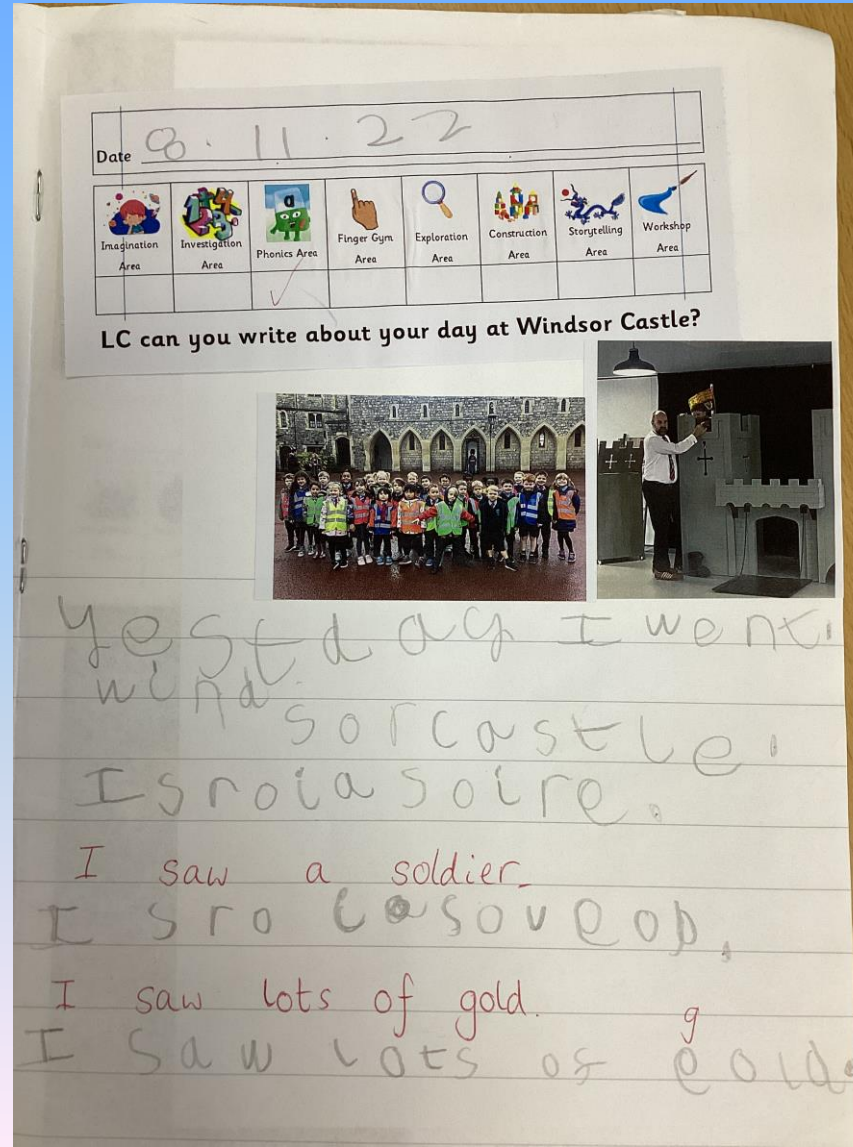 Date 8.11.22
Imagination Area Investigation Area Phonics Area Finger Gym Area Exploration Area Construction Area Storytelling Area Workshop Area
LC can you write about your day at Windsor Castle?
Yestday I went
wind
sorcastle.
I sroiasoire.
I saw a soldier.
I sro
I saw lots of gold.
g
I saw lots of eold.